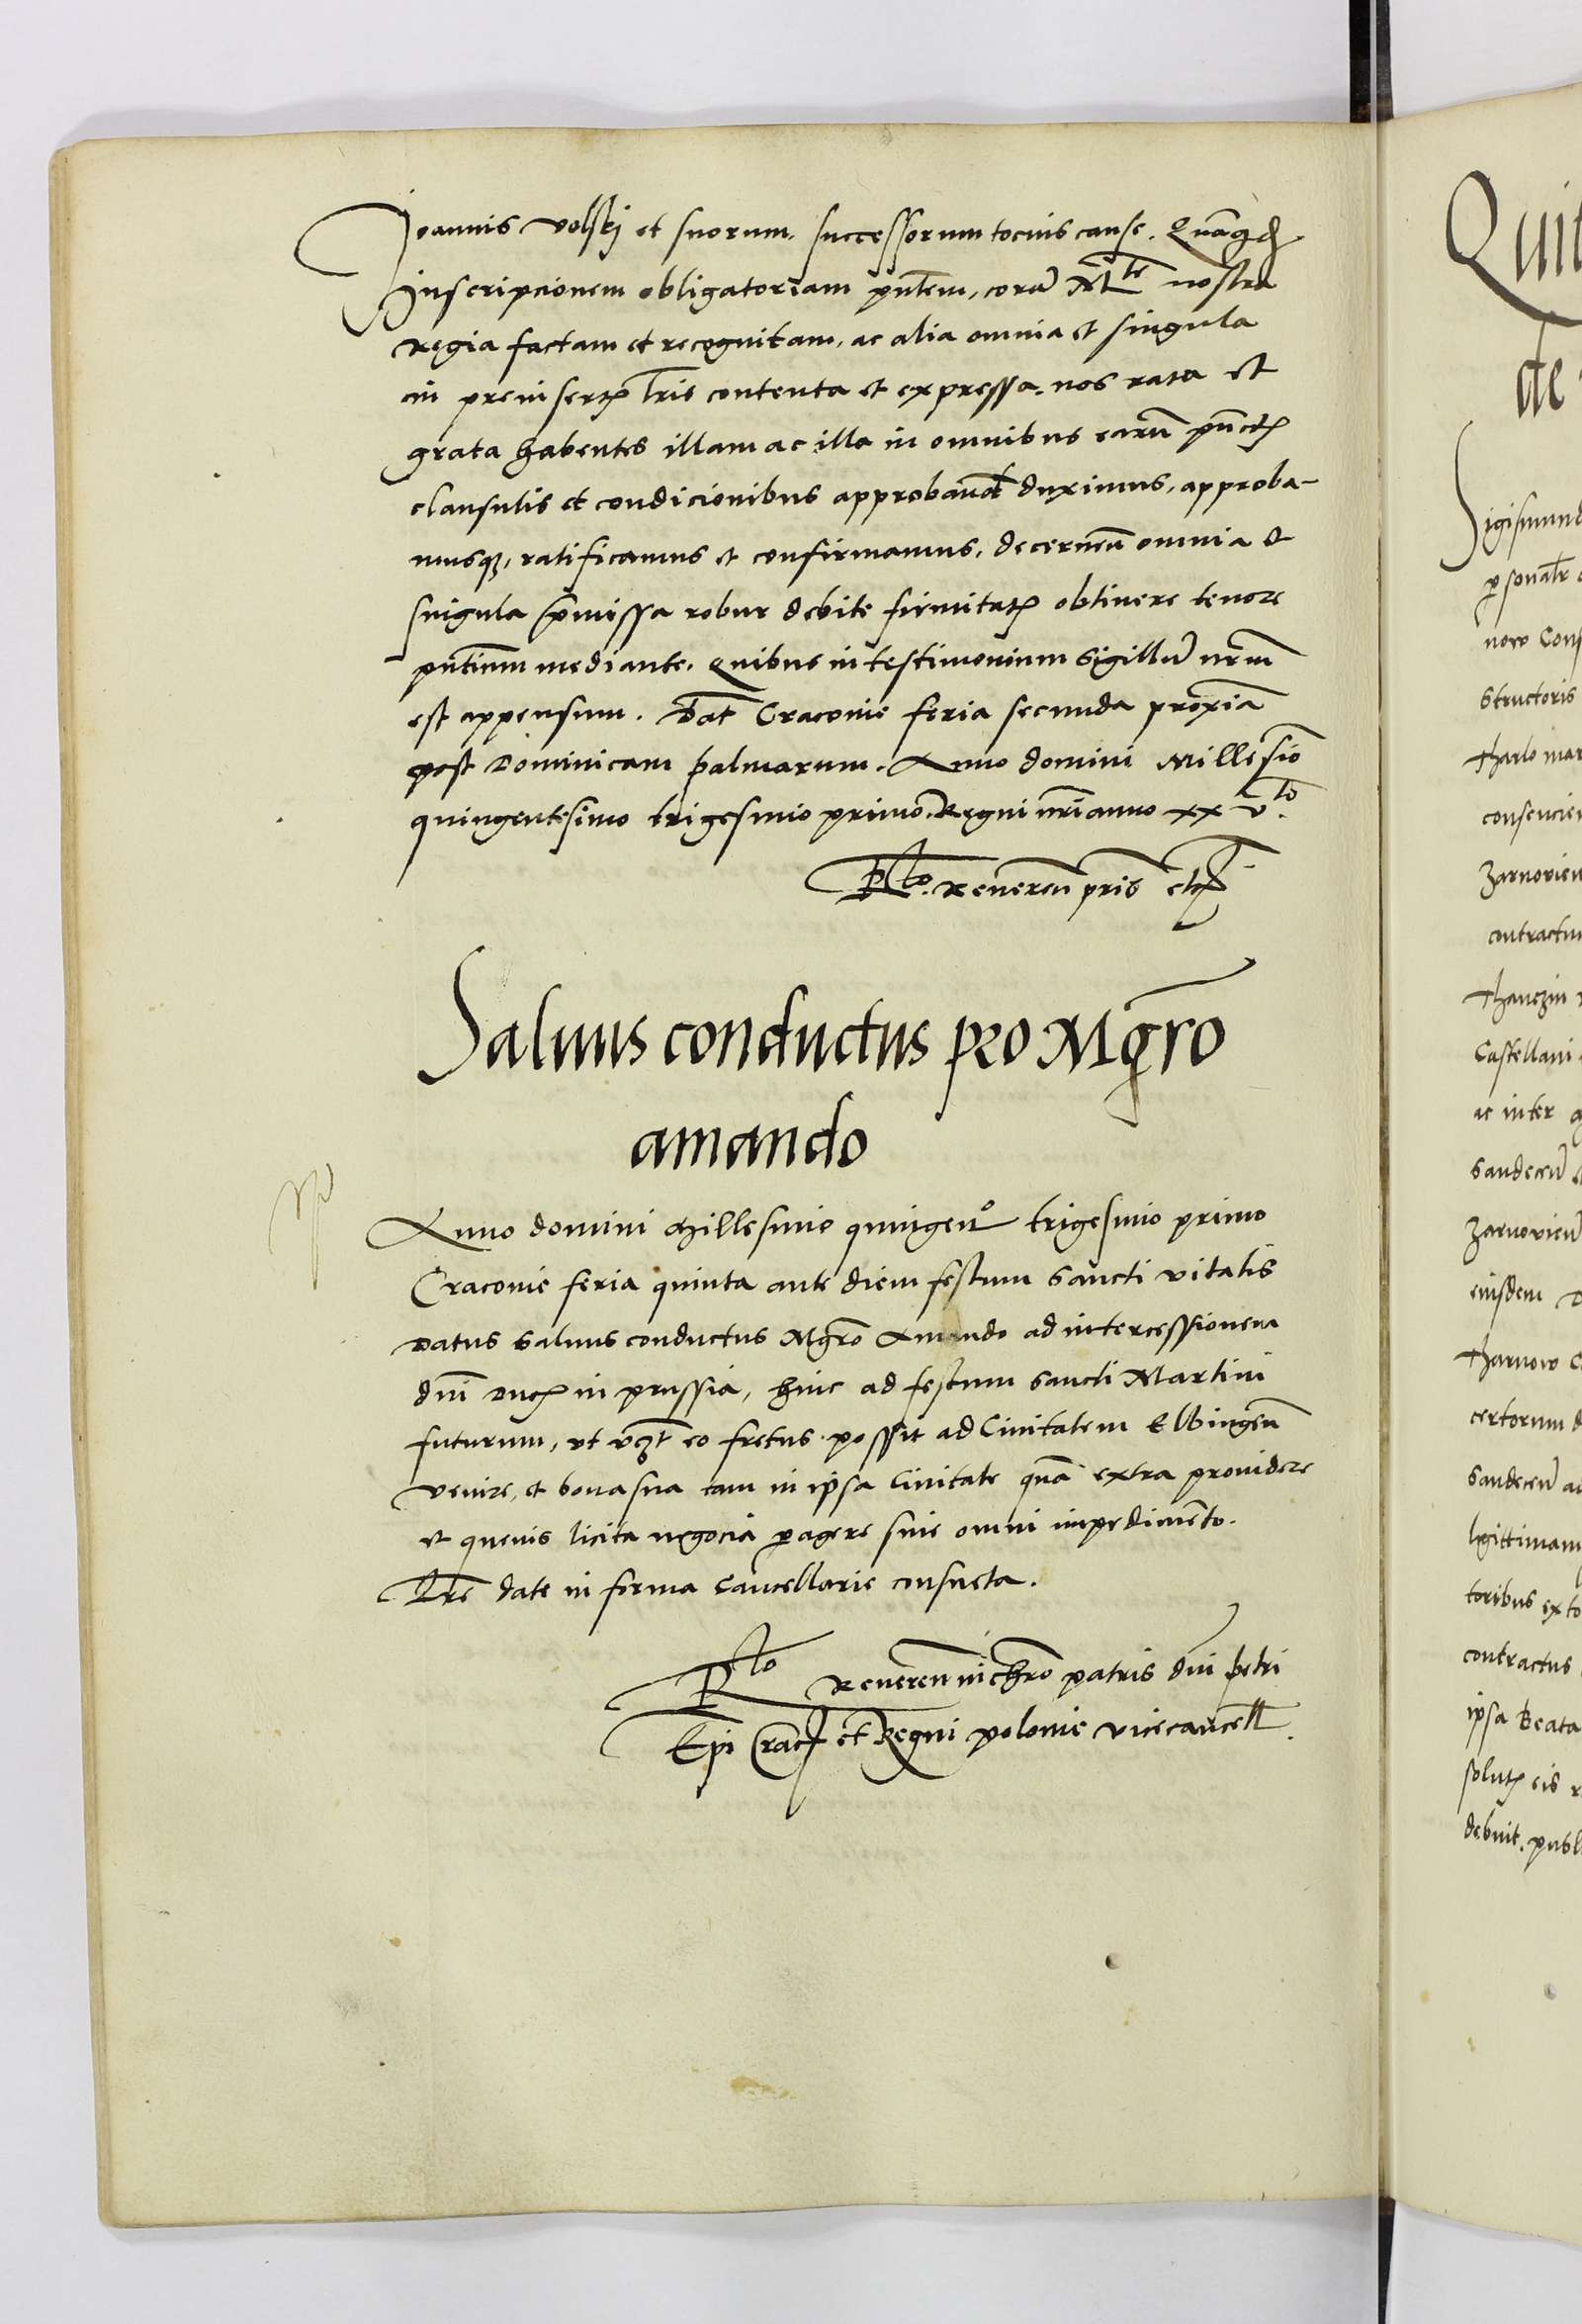 Joannis Volskj et suorum. successorum tocius cause. Quā quidē
Inscripcionem obligatoriam pn̄tem, corā M̄te nostra
Regia factam et recognitam, ac alia omnia et singula
in preinsertꝭ lr̄is contenta et expressa. nos rata et
grata habentes illam ac illa in omnibus earū punctꝭ
clausulis et condicionibus approband̄ duximus, approba-
musqꝫ, ratificamus et confirmamus, decernen̄ omnia et
singula p̄missa robur debite firmitatꝭ obtinere tenore
pn̄tium mediante. Quibus in testimonium Sigillū nr̄um
est appensum. Dat̄ Cracovie feria secunda proxīa
post Dominicam palmarum. Anno domini Millesīo
quingentesimo trigesimo primo. Regni nr̄i anno xxvto.
Rlo. Reveren̄ pr̄is etcꝭ
Salvus conductus pro Mgr̄o
amando
Anno domini Millesimo quingenᵒ trigesimo primo
Cracovie feria quinta ante diem festum Sancti vitalis
Datus Salvus conductus Mgr̄o Amando ad intercessionem
dn̄i Ducꝭ in prussia, hinc ad festum Sancti Martini
futurum, ut vꝫt eo fretus possit ad Civitatem Elbingen̄
venire, et bona sua tam in ipsa Civitate quā extra providere
et quevis licita negocia ꝑagere sine omni impedimēto.
Lr̄e date in forma Cancellarie consueta.
Rlo Reveren̄ in chr̄o patris dn̄i petri
Ep̄i Crac̄ et Regni polonie vicecancell̄.
Quit
de
Sigismund
ꝑsonalr̄
now Cons
Structoris
Tharlo mar
consencien
Zarnovien
contractu
Thanczin
Castellani
ac inter
Sandecen̄
Zarnovien̄
eiusdem
Tharnow
certorum
Sandecen̄ ac
legittimam
toribus ex to
contractus
ipsa Beata
solutꝭ eis
debuit. publ